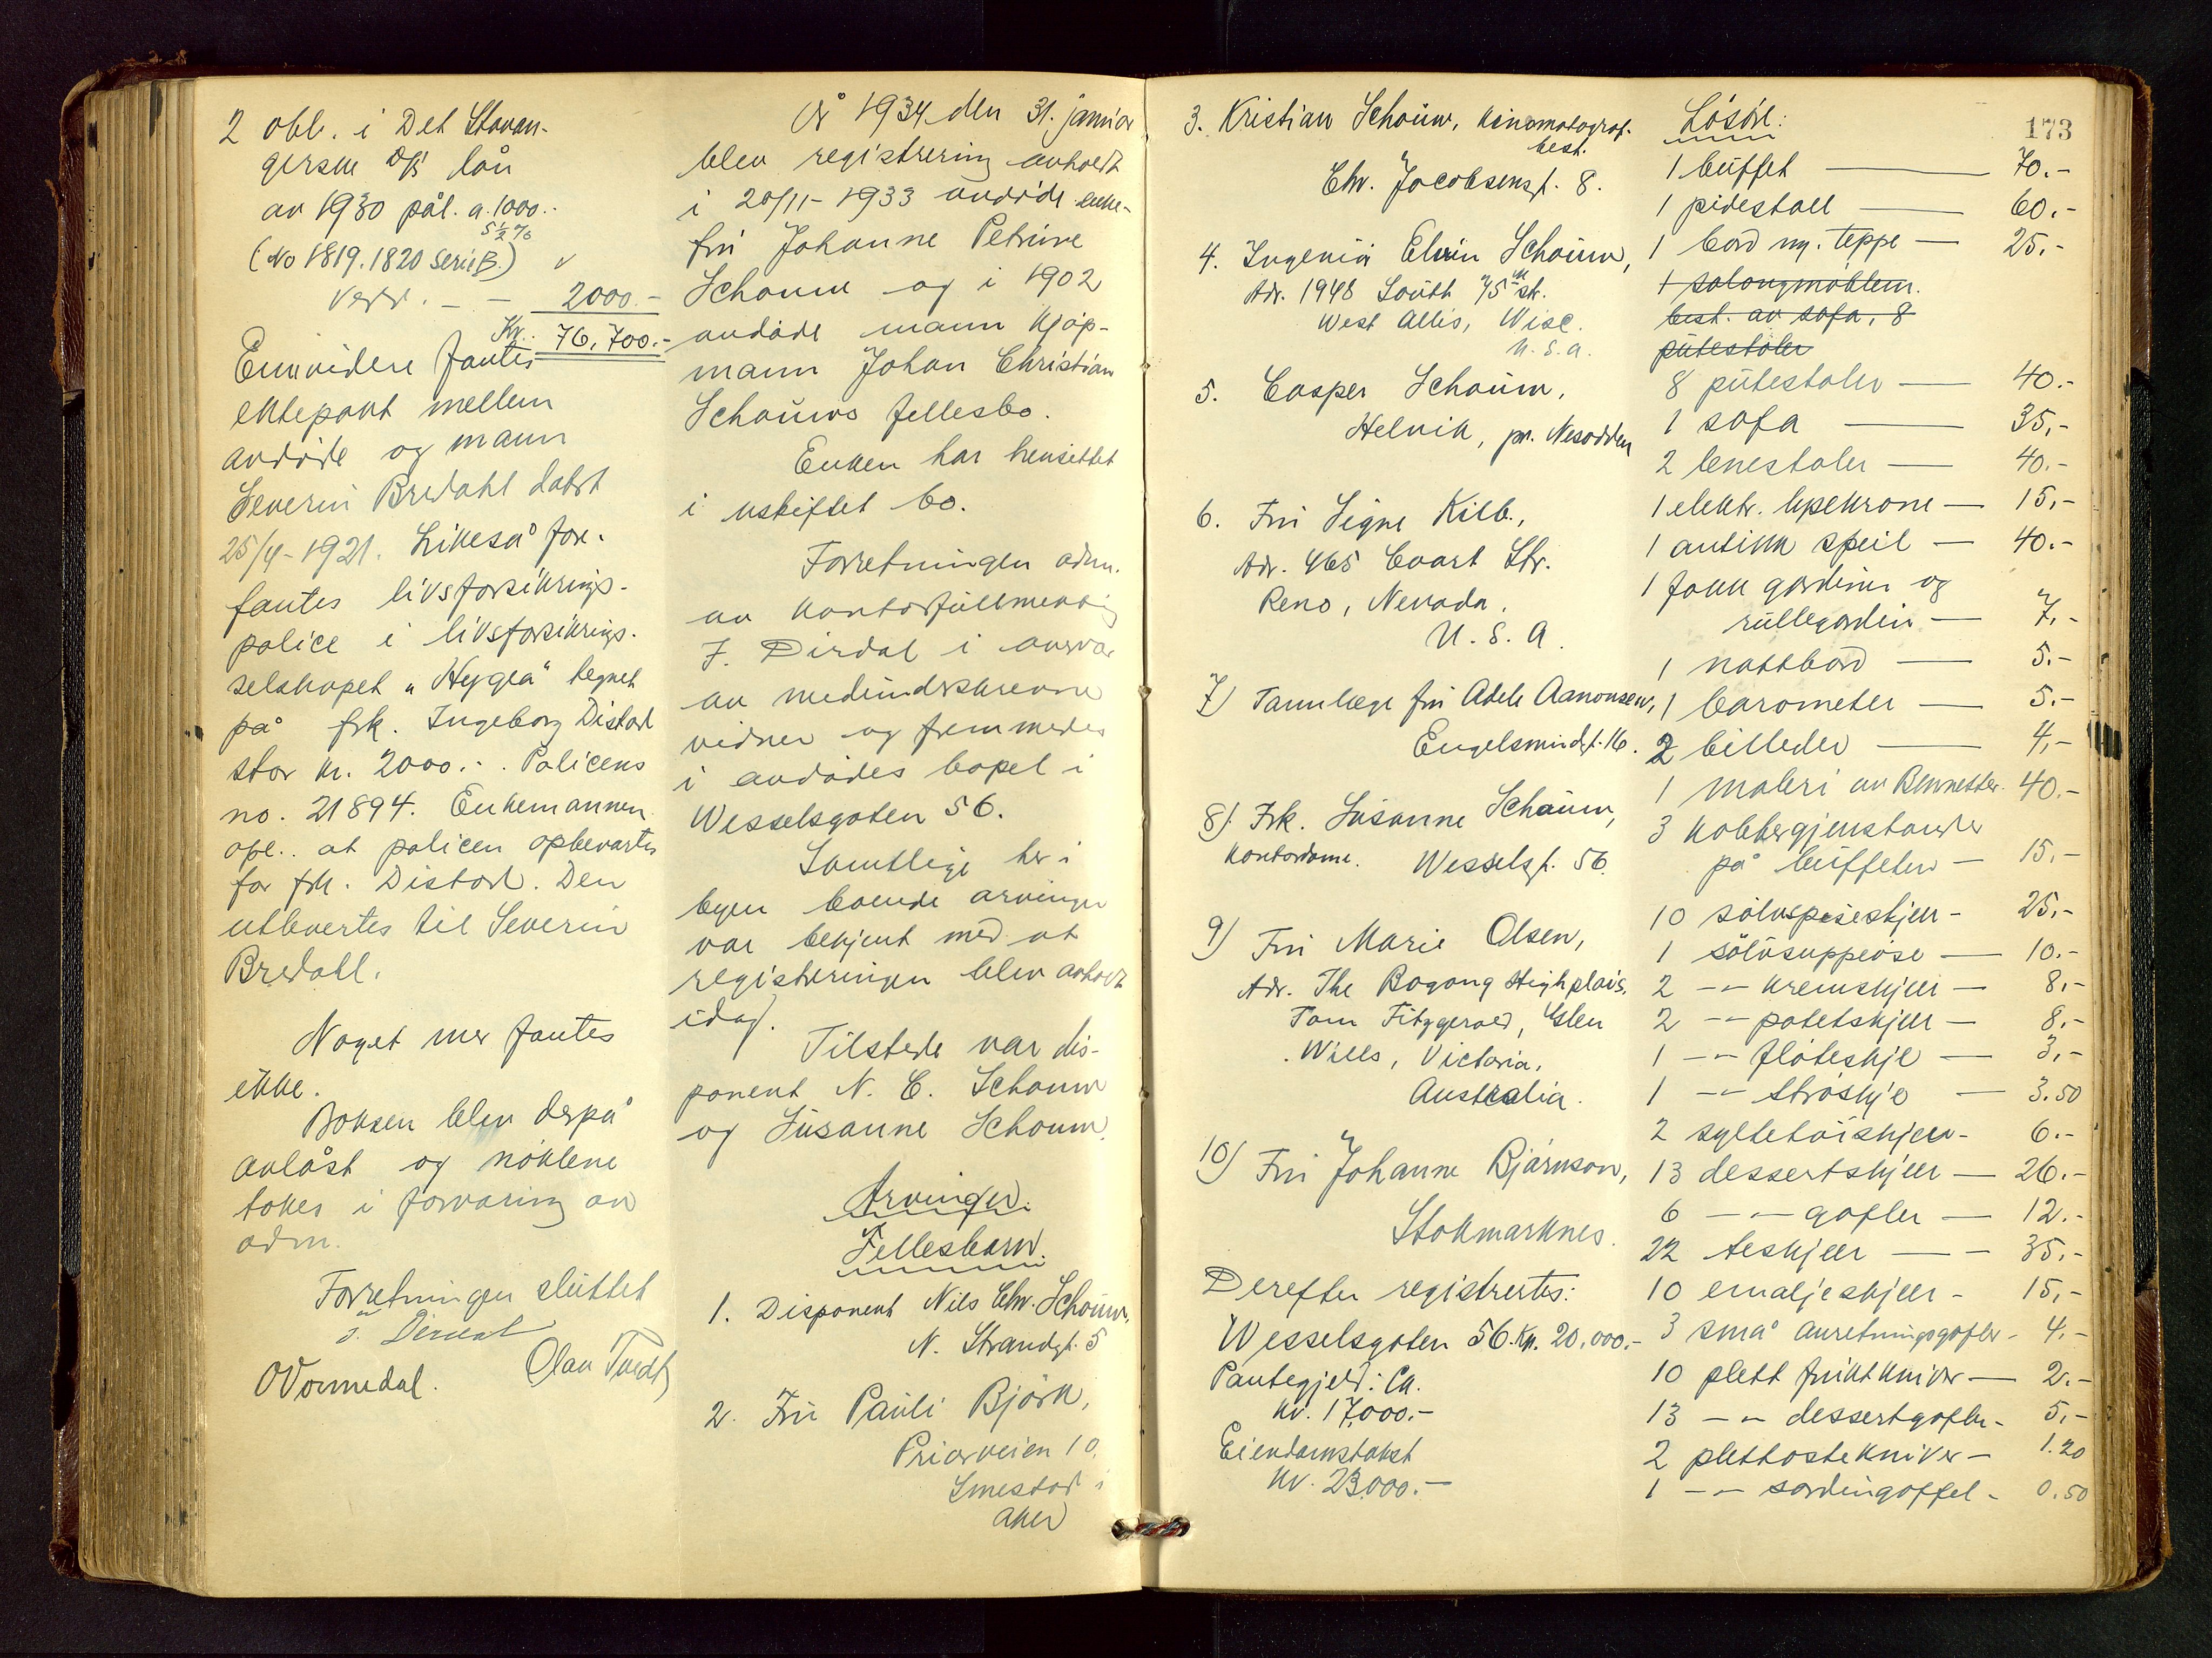 2 obl. i Det Stavan-
gerske D/s lån
av 1930 pål. a. 1000.-
5½%
(No 1819. 1820 Serie B.) v
Verd. - - 2000.-
Kr. 76,700.-
Ennvidere fantes
ektepakt mellem
avdöde og mann
Severin Bredahl datert
25/4-1921. Likeså for-
fantes livsforsikrings-
police i livsforsikrings-
selskapet "Hygea" tegnet
på frk. Ingeborg Distad
stor kr. 2000.-. Policens
no. 21894. Enkemannen
opl. at policen opbevartes
for frk. Distad. Den
utlevertes til Severin
Bredahl.
Noget mer fantes
ikke.
Boksen blev derpå
avlåst og nöklene
tokes i forvaring av
adm.
Forretningen sluttet
J. Dirdal
O Vormedal. Olav Tvedt
År 1934 den 31. januar
blev registrering avholdt
i 20/11-1933 avdöde enke-
fru Johanne Petrine
Schouw og i 1902
avdöde mann kjöp-
mann Johan Christian
Schouws fellesbo.
Enken har hensittet
i uskiftet bo.
Forretningen adm.
av kontorfullmektig
J. Dirdal i overvær
av medundskrevne
vidner og fremmedes
i avdödes bopel i
Wesselsgaten 56.
Samtlige her i
byen boende arvinger
var bekjent med at
registreringen blev avholdt
idag.
Tilstede var dis-
ponent N. C. Schouw
og Susanne Schouw.
Arvinger.
Fellesbarn.
1. Disponent Nils Chr. Schouw,
N. Strandgt. 5
2. Fru Pauli Björk,
Priorveien 10.
Smestad i
Aker
173
3. Kristian Schouw, kinematograf-
best.
Chr. Jacobsensgt. 8.
4. Ingeniör Elvin Schouw,
Adr. 1948 South 75th str.
West Allis, Wisc.
U.S.A.
5. Casper Schouw,
Helvik, pr. Nesodden
6. Fru Signe Kilb.,
Adr. 465 Court Str.
Reno, Nevada.
U.S.A.
7) Tannlæge fru Adele Aanonsen,
Engelsmindgt. 16.
8) Frk. Susanne Schouw,
kontordame. Wesselsgt. 56.
9) Fru Marie Olsen,
Adr. The Bogong High plains.
Tom Fitzgerald, Glen
Wills, Victoria,
Australia.
10) Fru Johanne Bjarnson,
Stokmarknes.
Derefter registrertes:
Wesselsgaten 56. Kr. 20.000.-
Pantegjeld: Ca.
kr. 17,000.-
Eiendomstakst
kr. 23,000.-
Lösöre:
1 buffet — 70.-
1 pidestall — 60.-
1 bord m. teppe — 25.-
1 salongmöblem.
best. av sofa, 8
putestoler
8 putestoler — 40.-
1 sofa — 35,-
2 lenestoler — 40.-
1 elektr. lysekrone — 15,-
1 antikk speil — 40.-
1 fakk gardiner og
rullegardin — 7,-
1 nattbord — 5.-
1 barometer — 5.-
2 billeder — 4,-
1 maleri av Bennetter. 40.-
3 kobbergjenstander
på buffeten — 15.-
10 sölvspiseskjeer - 25.-
1 sölvsuppeöse — 10.-
2 -"- kremskjeer — 8,-
2 -"- potetskjeer — 8.-
1 -"- flöteskje — 3,-
1 -"- ströskje — 3.50
2 syltetöiskjeer - 6.-
13 dessertskjeer — 26.-
6 -"- gafler — 12.-
22 teskjeer — 35.-
10 emaljeskjeer - 15,-
3 små anretningsgafler - 4.-
10 plett fruktkniver — 2.-
13 -"- dessertgafler - 5,-
2 plettostekniver - 1.20
1 -"- sardingaffel - 0.50